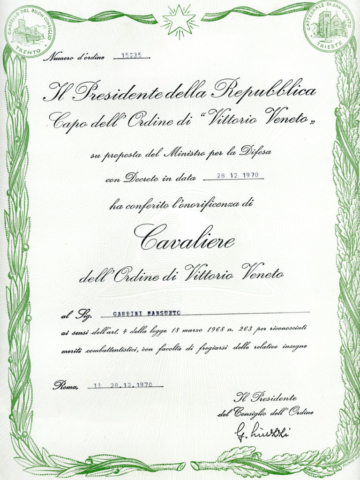 CASTELLO DEL BUON CONSIGLIO
TRENTO
CATTEDRALE DI SAN GIUSTO
TRIESTE
Numero d'ordine 15235
Il Presidente della Repubblica
Capo dell'Ordine di "Vittorio Veneto"
su proposta del Ministro per la Difesa
con Decreto in data 28 12 1970
ha conferito l'onorificenza di
Cavaliere
dell'Ordine di Vittorio Veneto
al Sig. MANSUETO
ai sensi dell'art. 4 della legge 18 marzo 1968 n. 263 per riconosciuti
meriti combattentistici, con facoltà di fregiarsi delle relative insegne
Roma, 28.12.1970
Il Presidente
del Consiglio dell'Ordine